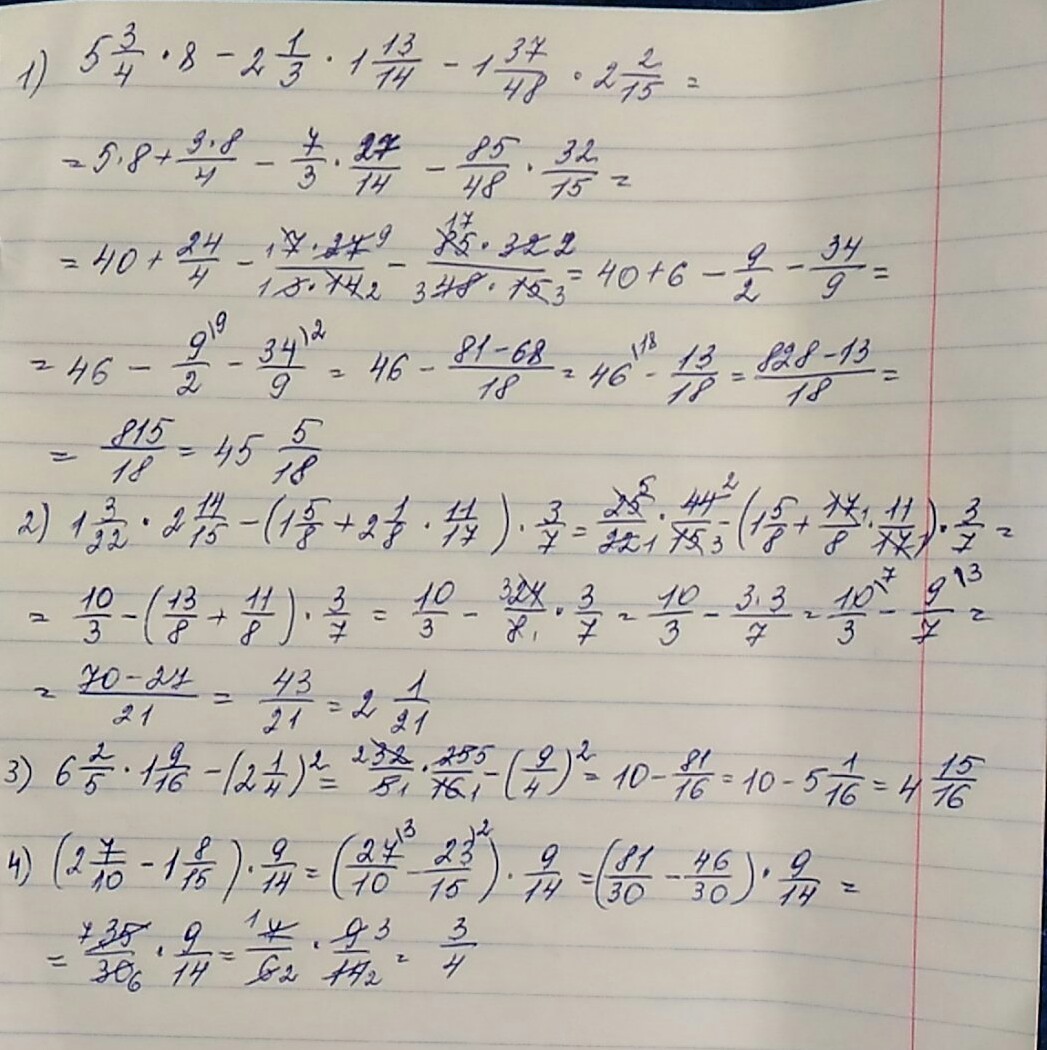 1) 5 3/4 · 8 − 2 1/3 · 1 13/14 − 1 37/48 · 2 2/15 =
= 5·8 + 3·8/4 − 7/3 · 27/14 − 85/48 · 32/15 =
= 40 + 24/4 − 1 7·27 9/1 3·14 2 − 17 85·32 2/3 48·15 3 = 40 + 6 − 9/2 − 34/9 =
= 46 − 9/2 \9 − 34/9 \2 = 46 − 81−68/18 = 46 \18 − 13/18 = 828−13/18 =
= 815/18 = 45 5/18
2) 1 3/22 · 2 14/15 − (1 5/8 + 2 1/8 · 11/17) · 3/7 = 25 5/22 1 · 44 2/15 3 − (1 5/8 + 17 1/8 · 11/17 1) · 3/7 =
= 10/3 − (13/8 + 11/8) · 3/7 = 10/3 − 3 24/8 1 · 3/7 = 10/3 − 3·3/7 = 10/3 \7 − 9/7 \3 =
= 70−27/21 = 43/21 = 2 1/21
3) 6 2/5 · 1 9/16 − (2 1/4)² = 2 32/5 1 · 25 5/16 1 − (9/4)² = 10 − 81/16 = 10 − 5 1/16 = 4 15/16
4) (2 7/10 − 1 8/15) · 9/14 = (27/10 \3 − 23/15 \2) · 9/14 = (81/30 − 46/30) · 9/14 =
= 7 35/30 6 · 9/14 = 1 7/6 2 · 9 3/14 2 = 3/4